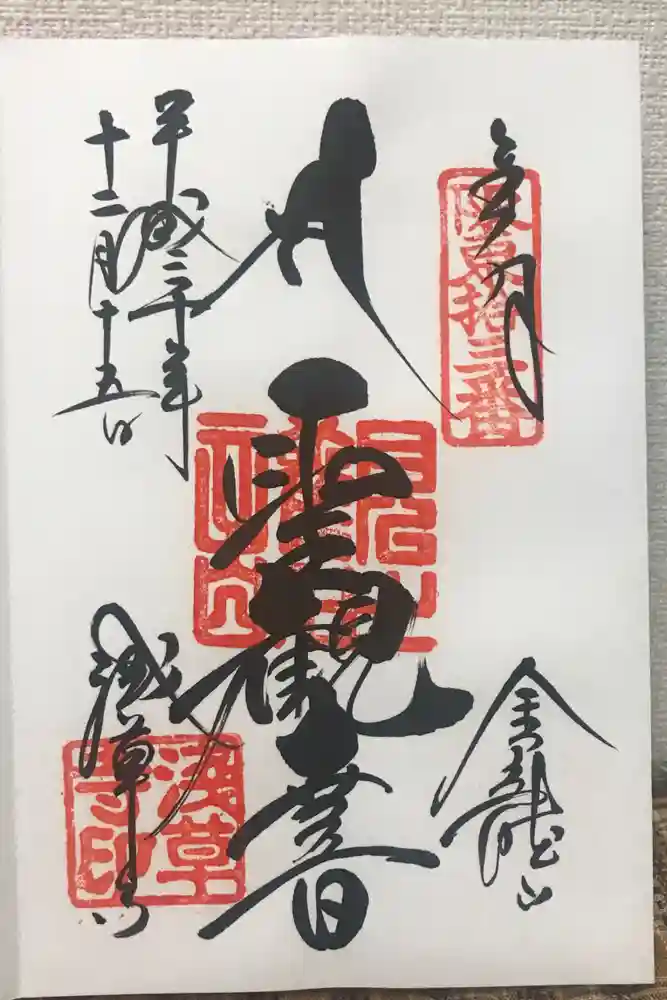 奉拝
坂東拾三番
金龍山
聖観世音
平成三十年
十二月十五日
浅草寺
浅草
寺印